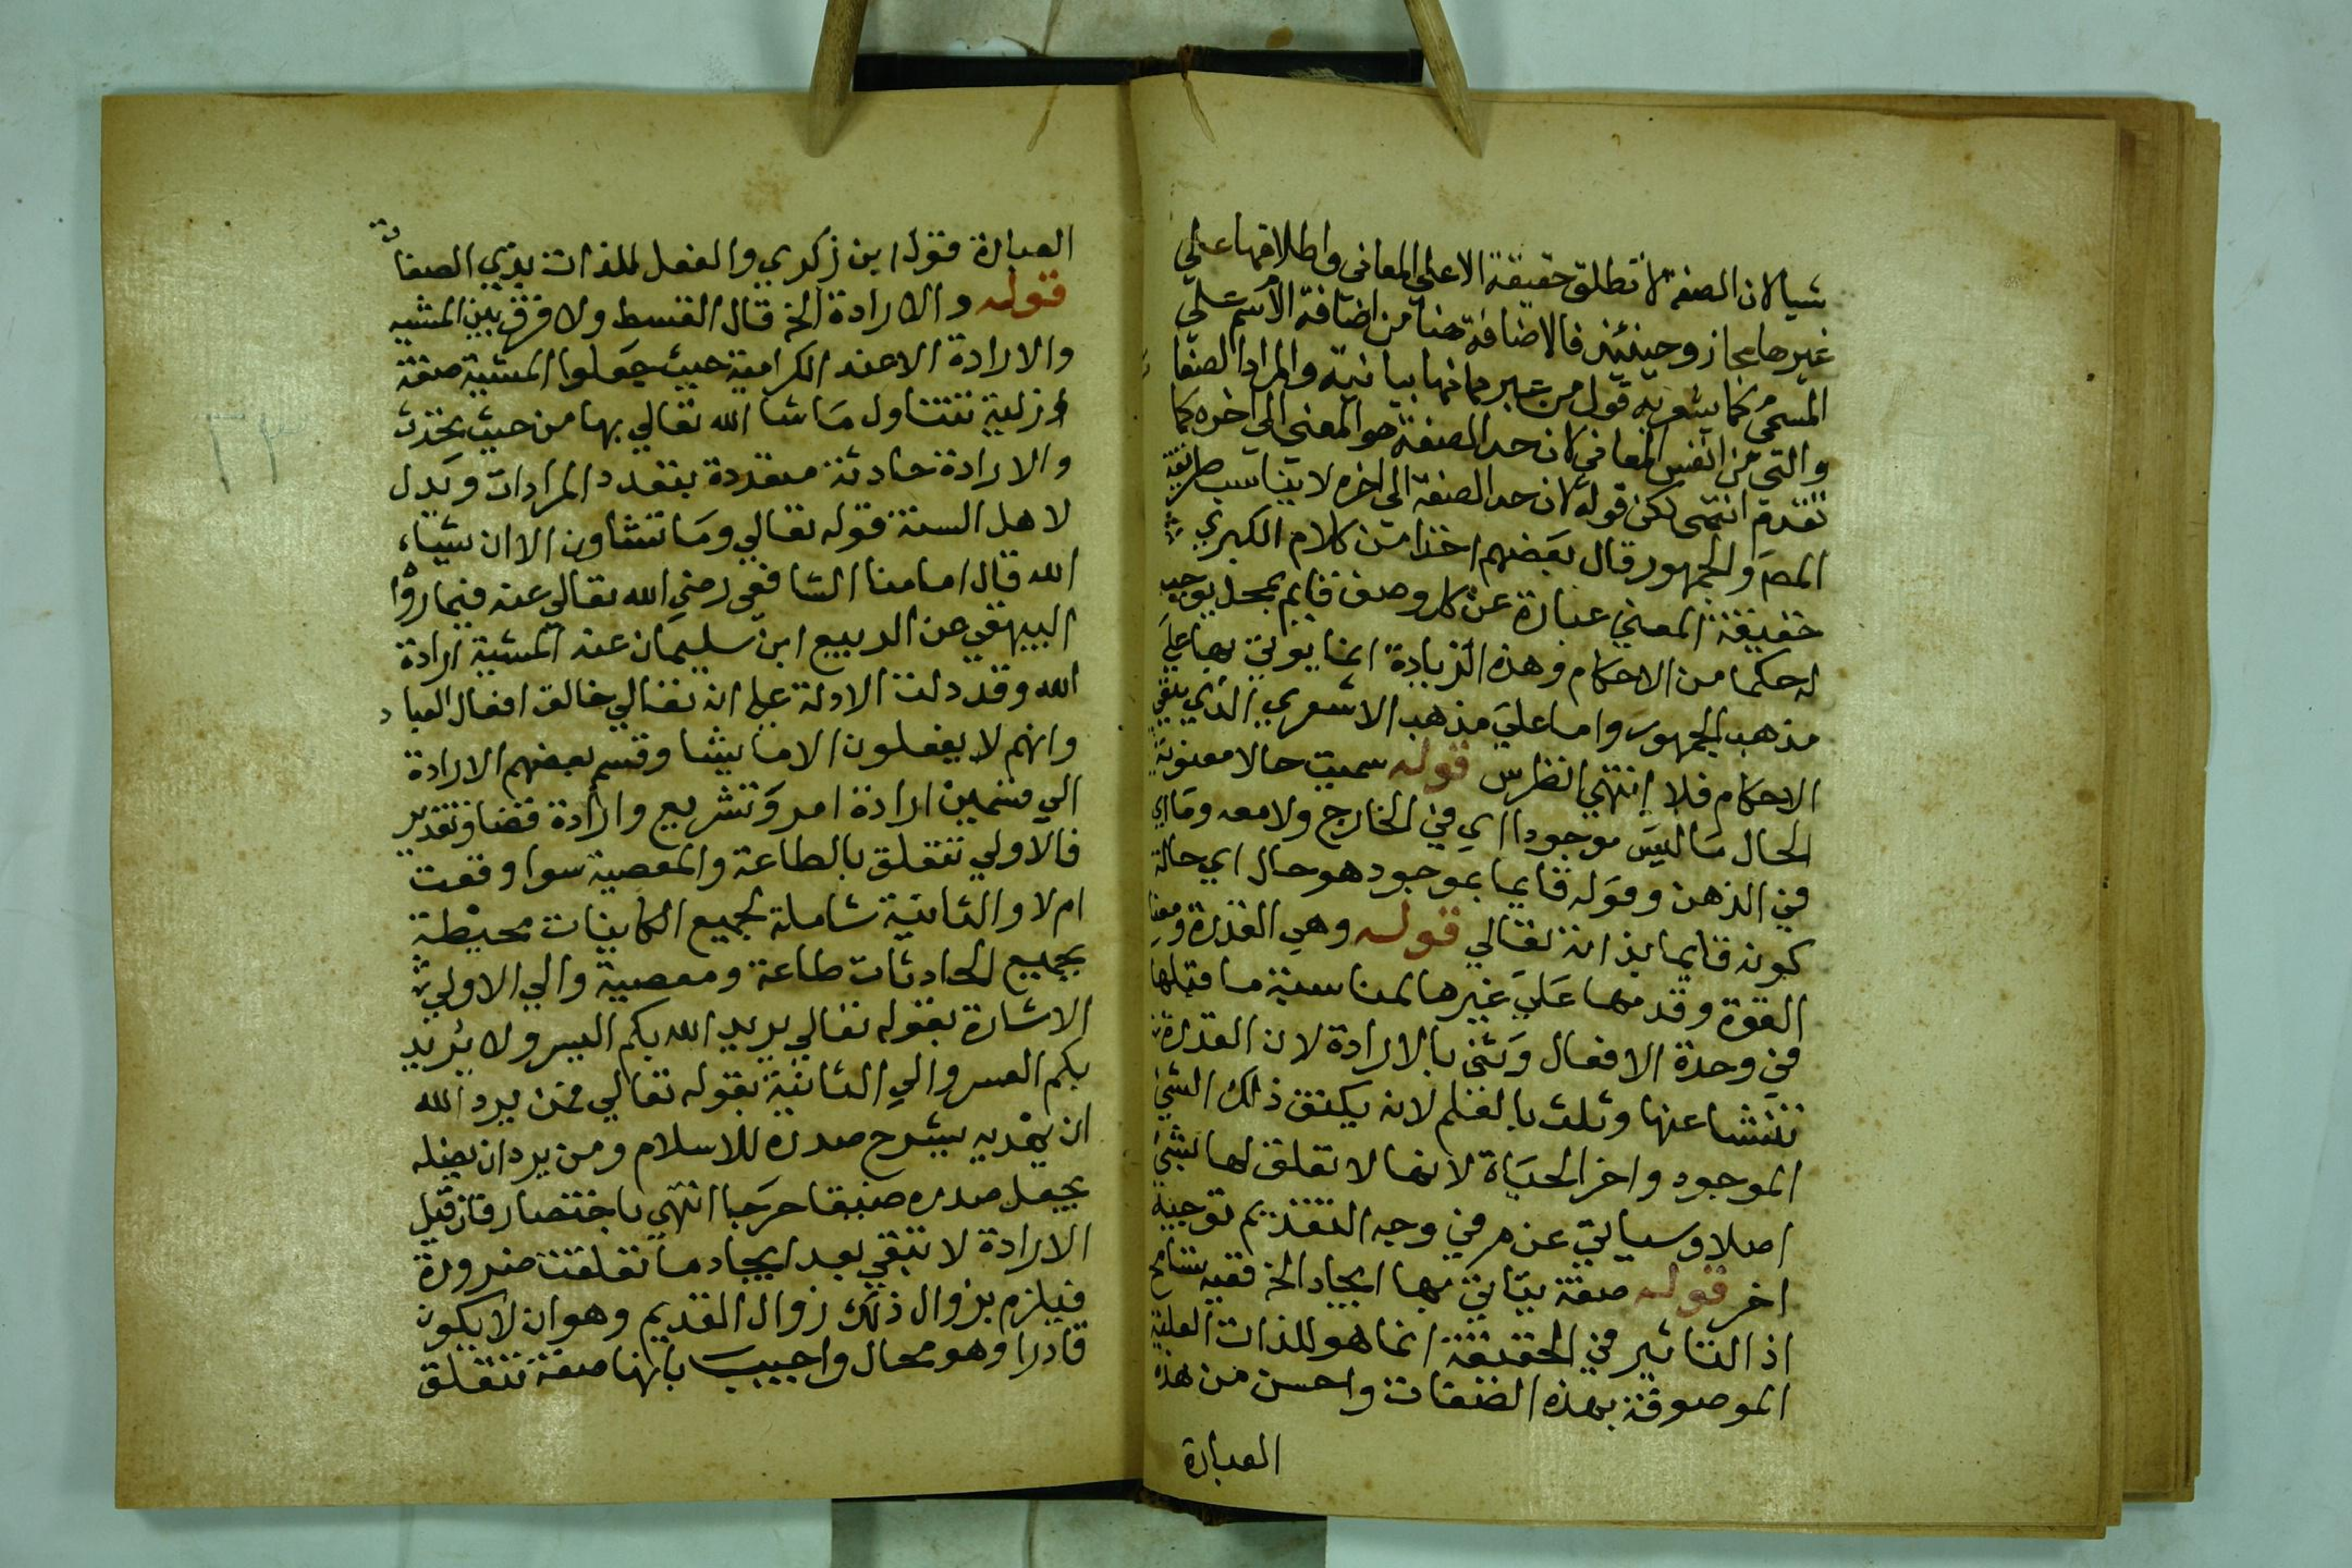 شيا لان الصفة لا تطلق حقيقة الا علي المعاني واطلاقها علي
غيرها مجاز وحينئذ فالاضافة هنا من اضافة الاسم علي
المسمي كما يشعر به قول من عبر مانها بيانية والمراد الصفا
والتي من انفس المعاني لان حد الصفة هو المعني الي اخره كما
تقدم انتهى لكن قوله لان حد الصفة الى اخره لا يناسب طريقة
المص والجمهور قال بعضهم اخذا من كلام الكبري
حقيقة المعني عبارة عن كل وصف قايم بمحل يوجب
له حكما من الاحكام وهذه الزيادة انما يوتي بها علي
مذهب الجمهور واما علي مذهب الاشعري الذي ينفي
الاحكام فلا انتهي انظر س قوله سميت حالا معنوية
الحال ما ليس موجودا اي في الخارج ولا معدوما اي
في الذهن وقوله قايما بموجود هو حال اي حالة
كونه قايما بذاته تعالي قوله وهي القدرة ومعنا
القوة وقدمها علي غيرها لمناسبة ما قبلها
في وحدة الافعال وثني بالارادة لان القدرة
تنشا عنها وثلث بالعلم لانه يكنف ذلك الشي
الموجود واخر الحياة لانها لا تعلق لها بشي
اصلا وسياتي عن م في وجه التقديم توجيه
اخر قوله صفة يتاتي بها ايجاد الخ ففيه تسامح
اذ التاثير في الحقيقة انما هو للذات العلية
الموصوفة بهذه الصفات واحسن من هذه
العبارة
العبارة قول ابن زكري والفعل للذات بذي الصفات
قوله والارادة الخ قال القسط ولا فرق بين المشيه
والارادة الا عند الكرامية حيث جعلوا المشية صفة
ازلية تتناول ما شا الله تعالي بها من حيث يحدث
والارادة حادثة متعددة بتعدد المرادات ويدل
لاهل السنة قوله تعالي وما تشاون الا ان يشاء
الله قال امامنا الشافعي رضي الله تعالي عنه فيما روا
البيهقي عن الربيع ابن سليمان عنه المشية ارادة
الله وقد دلت الادلة علي انه تعالي خالق افعال العباد
وانهم لا يفعلون الا ما يشا وقسم بعضهم الارادة
الي قسمين ارادة امر وتشريع وارادة قضا وتقدير
فالاولي تتعلق بالطاعة والمعصية سوا وقعت
ام لا والثانية شاملة لجميع الكاينات محيطة
بجميع الحادثات طاعة ومعصية والي الاولي
الاشارة بقوله تعالي يريد الله بكم اليسر ولا يريد
بكم العسر والي الثانية بقوله تعالي فمن يرد الله
ان يهديه يشرح صدره للاسلام ومن يرد ان يضله
يجعل صدره ضيقا حرجا انتهي باختصار فان قيل
الارادة لا تبقي بعد ايجاد ما تعلقت ضرورة
فيلزم بزوال ذلك زوال القديم وهو ان لا يكون
قادرا وهو محال واجيب بانها صفة تتعلق